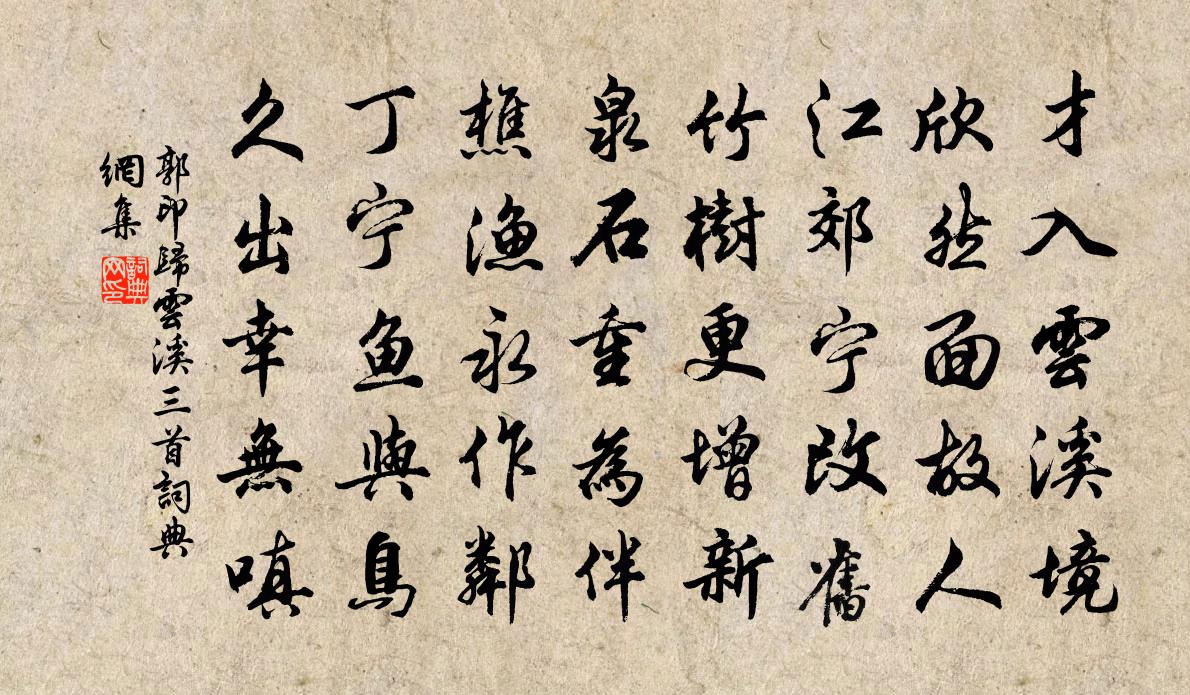 才入雲溪境
欣然面故人
江郊宁改舊
竹樹更增新
泉石重為伴
樵漁永作鄰
丁宁鱼與鳥
久出幸無嗔
郭印歸雲溪三首詞典
網集
詞典
网印